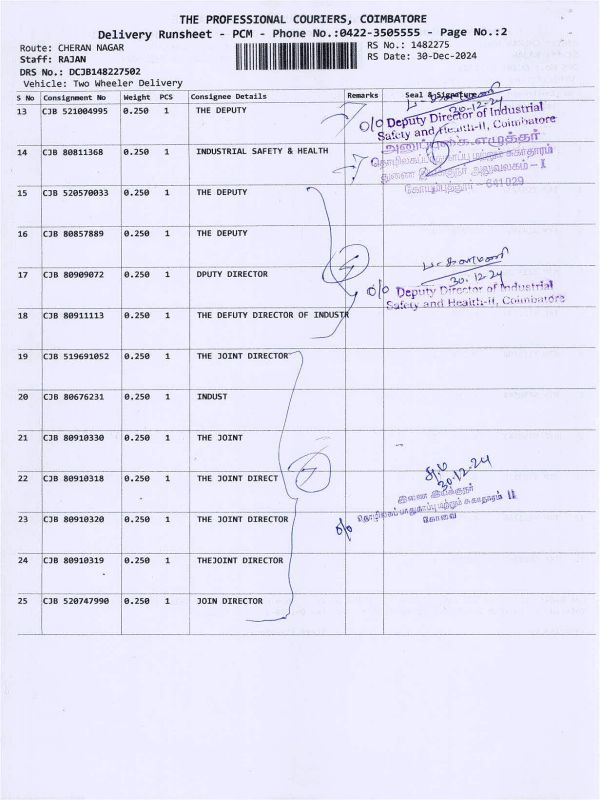 THE PROFESSIONAL COURIERS, COIMBATORE
Delivery Runsheet - PCM - Phone No.:0422-3505555 - Page No.:2
Route: CHERAN NAGAR
RS No.: 1482275
Staff: RAJAN
RS Date: 30-Dec-2024
DRS No.: DCJB148227502
Vehicle: Two Wheeler Delivery
S No Consignment No Weight PCS Consignee Details Remarks Seal & Signature
13 CJB 521004995 0.250 1 THE DEPUTY
30-12-24
o/o Deputy Director of Industrial
Safety and Health-II, Coimbatore
14 CJB 80811368 0.250 1 INDUSTRIAL SAFETY & HEALTH
அனுப்புகை எழுத்தர்
தொழிலகப் பாதுகாப்பு மற்றும் சுகாதாரம்
துணை இயக்குநர் அலுவலகம் – I
கோயம்புத்தூர் – 641029
15 CJB 520570033 0.250 1 THE DEPUTY
16 CJB 80857889 0.250 1 THE DEPUTY
17 CJB 80909072 0.250 1 DPUTY DIRECTOR
30.12.24
o/o Deputy Director of Industrial
Safety and Health-II, Coimbatore
18 CJB 80911113 0.250 1 THE DEFUTY DIRECTOR OF INDUSTR
19 CJB 519691052 0.250 1 THE JOINT DIRECTOR
20 CJB 80676231 0.250 1 INDUST
21 CJB 80910330 0.250 1 THE JOINT
22 CJB 80910318 0.250 1 THE JOINT DIRECT
30.12.24
இணை இயக்குநர்
23 CJB 80910320 0.250 1 THE JOINT DIRECTOR
o/o தொழிலகப் பாதுகாப்பு மற்றும் சுகாதாரம் II
கோவை
24 CJB 80910319 0.250 1 THEJOINT DIRECTOR
25 CJB 520747990 0.250 1 JOIN DIRECTOR